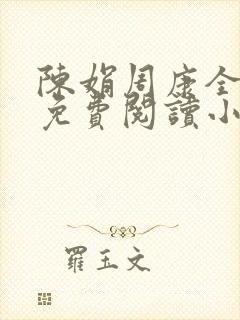 陳娟周康全
免費閱讀小
羅玉文